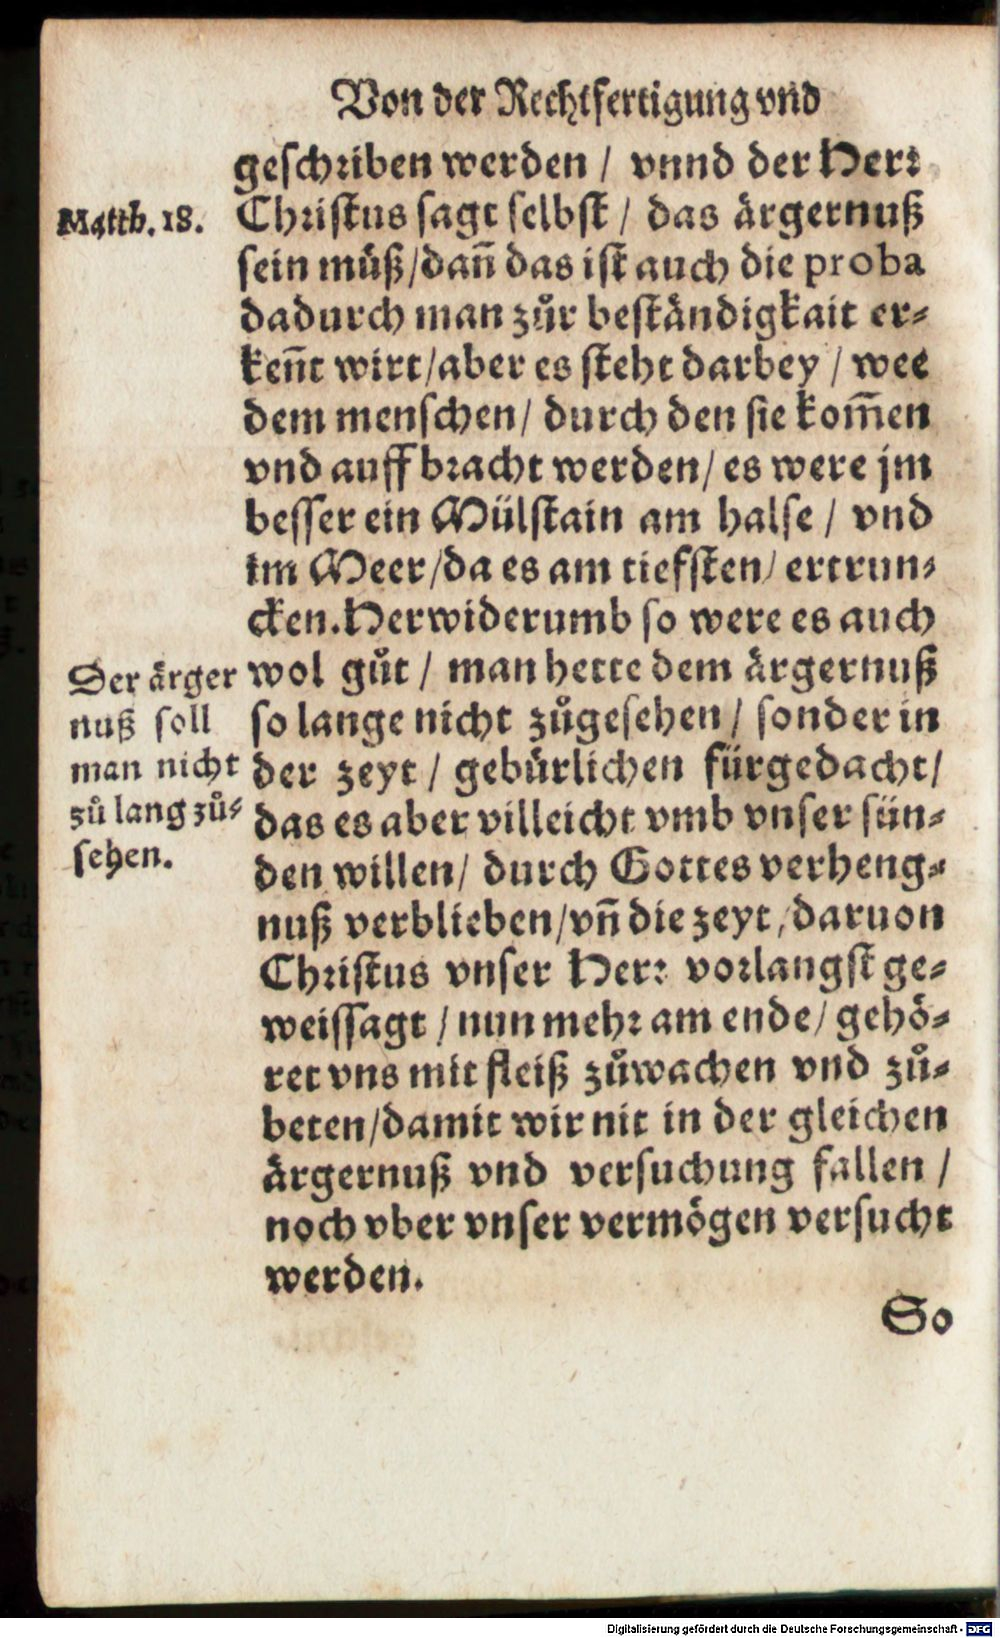 Von der Rechtfertigung vnd
geschriben werden / vnnd der Herr
Matth. 18.
Christus sagt selbst / das ärgernuß
sein müß / dañ das ist auch die proba
dadurch man zůr beständigkait er⸗
keñt wirt / aber es steht darbey / wee
dem menschen / durch den sie kom̃en
vnd auff bracht werden / es were jm
besser ein Mülstain am halse / vnd
im Meer / da es am tiefsten / ertrun⸗
cken. Herwiderumb so were es auch
wol gůt / man hette dem ärgernuß
so lange nicht zůgesehen / sonder in
der zeyt / gebürlichen fürgedacht /
das es aber villeicht vmb vnser sün⸗
den willen / durch Gottes verheng⸗
nuß verblieben / vñ die zeyt, daruon
Christus vnser Herr vorlangst ge⸗
weissagt / nun mehr am ende / gehö⸗
ret vns mit fleiß zůwachen vnd zů⸗
beten / damit wir nit in der gleichen
ärgernuß vnd versuchung fallen /
noch vber vnser vermögen versucht
werden.
Der ärger
nuß soll
man nicht
zů lang zů⸗
sehen.
So
Digitalisierung gefördert durch die Deutsche Forschungsgemeinschaft - DFG